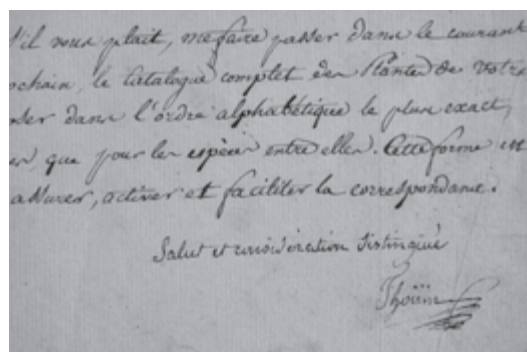 s'il vous plait, me faire passer dans le courant
ochain, le Catalogue complet des Plantes de votre
oser dans l'ordre alphabétique le plus exact,
es, que pour les espèces entre elles. Cette forme est
assurer, activer et faciliter la correspondance.
Salut et considération distinguée
Thoüin